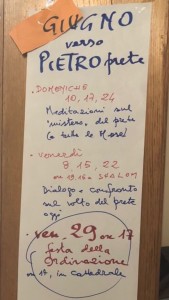 GIUGNO
verso
PIETRO prete
. DOMENICHE
10, 17, 24
Meditazioni sul
"mistero" del prete
(a tutte le Messe)
. venerdì
8, 15, 22
ore 19.15 SHALOM
Dialogo e confronto
sul volto del prete
oggi
. ven. 29 ore 17
festa della
Ordinazione
in cattedrale